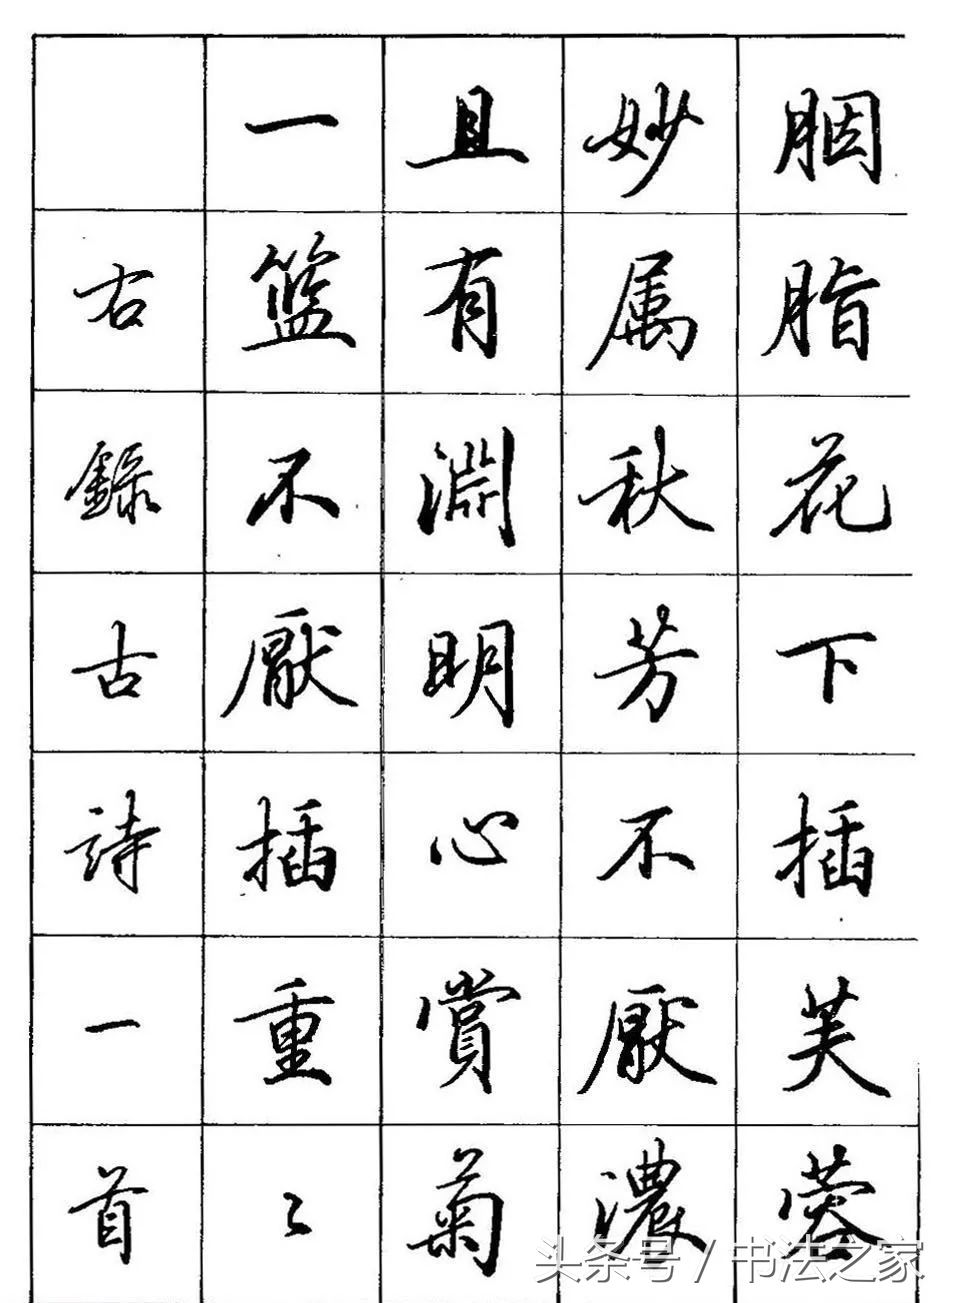 胭脂花下插芙蓉
妙属秋芳不厭濃
且有淵明心賞菊
一籃不厭插重〻
右錄古詩一首
头条号 / 书法之家